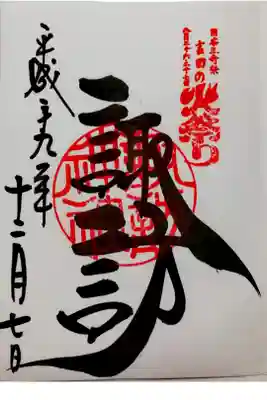 日本三奇祭
吉田の
火祭り
諏訪
平成二十九年
十二月七日